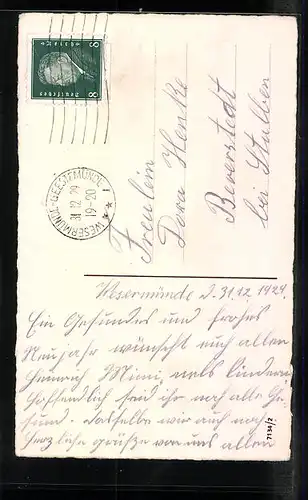 8 8
Deutsches Reich
WESERMÜNDE-GEESTEMÜNDE 1
31.12.29
19-20
Fräulein
Dora Henke
Beverstedt
bei Stubben
Wesermünde d. 31.12.1929.
Ein Gesundes und frohes
Neujahr wünscht euch allen
Heinrich Mimi nebs Kinder
Hoffendlich seid ihr noch alle Ge-
sund. dasselbe wir auch noch
Herzliche grüße von uns allen
7134/2